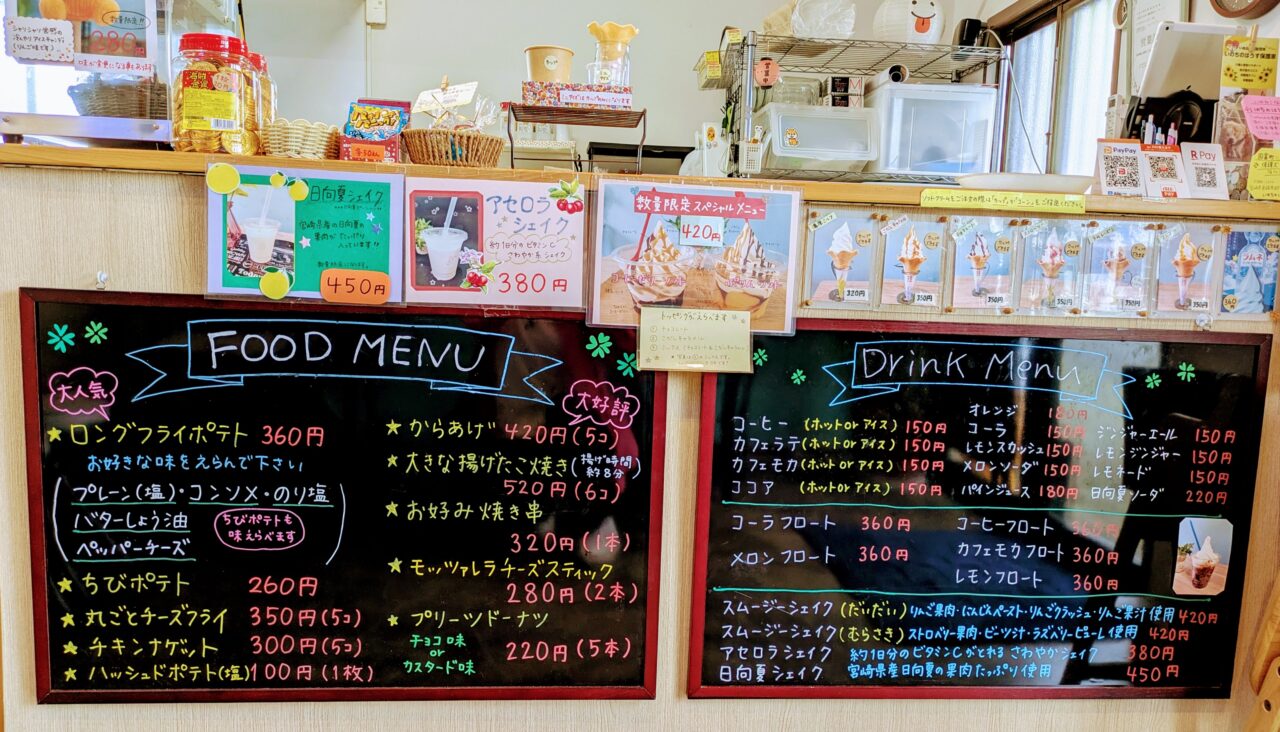 数量限定!!
280円
味が変更になる事もあります
各30えん
営業中
PayPay
R Pay
日向夏シェイク
宮崎県産の日向夏の
果肉がたっぷり
入っています!!
数量限定です!
450円
アセロラ
シェイク
約1日分のビタミンC
さわやか系シェイク
380円
数量限定スペシャルメニュー
420円
トッピングがえらべます
① チョコレート
320円
350円
350円
350円
350円
350円
ラムネ
360円
FOOD MENU
大人気
★ ロングフライポテト 360円
お好きな味をえらんで下さい
プレーン(塩)・コンソメ・のり塩
バターしょう油
ペッパーチーズ
ちびポテトも
味えらべます
★ ちびポテト 260円
★ 丸ごとチーズフライ 350円(5コ)
★ チキンナゲット 300円(5コ)
★ ハッシュドポテト(塩) 100円(1枚)
大好評
★ からあげ 420円(5コ)
★ 大きな揚げたこ焼き(揚げ時間
約8分)
520円(6コ)
★ お好み焼き串
320円(1本)
★ モッツァレラチーズスティック
280円(2本)
★ プリーツドーナツ
チョコ味
or
カスタード味
220円(5本)
Drink Menu
コーヒー (ホットorアイス) 150円
カフェラテ (ホットorアイス) 150円
カフェモカ (ホットorアイス) 150円
ココア (ホットorアイス) 150円
オレンジ 180円
コーラ 150円
レモンスカッシュ 150円
メロンソーダ 150円
パインジュース 180円
ジンジャーエール 150円
レモンジンジャー 150円
レモネード 150円
日向夏ソーダ 220円
コーラフロート 360円
メロンフロート 360円
コーヒーフロート 360円
カフェモカフロート 360円
レモンフロート 360円
スムージーシェイク (だいだい) りんご果肉・にんじんペースト・りんごクラッシュ・りんご果汁使用 420円
スムージーシェイク (むらさき) ストロベリー果肉・ビーツ汁・ラズベリーピューレ使用 420円
アセロラシェイク 約1日分のビタミンCがとれる さわやかシェイク 380円
日向夏シェイク 宮崎県産日向夏の果肉たっぷり使用 450円